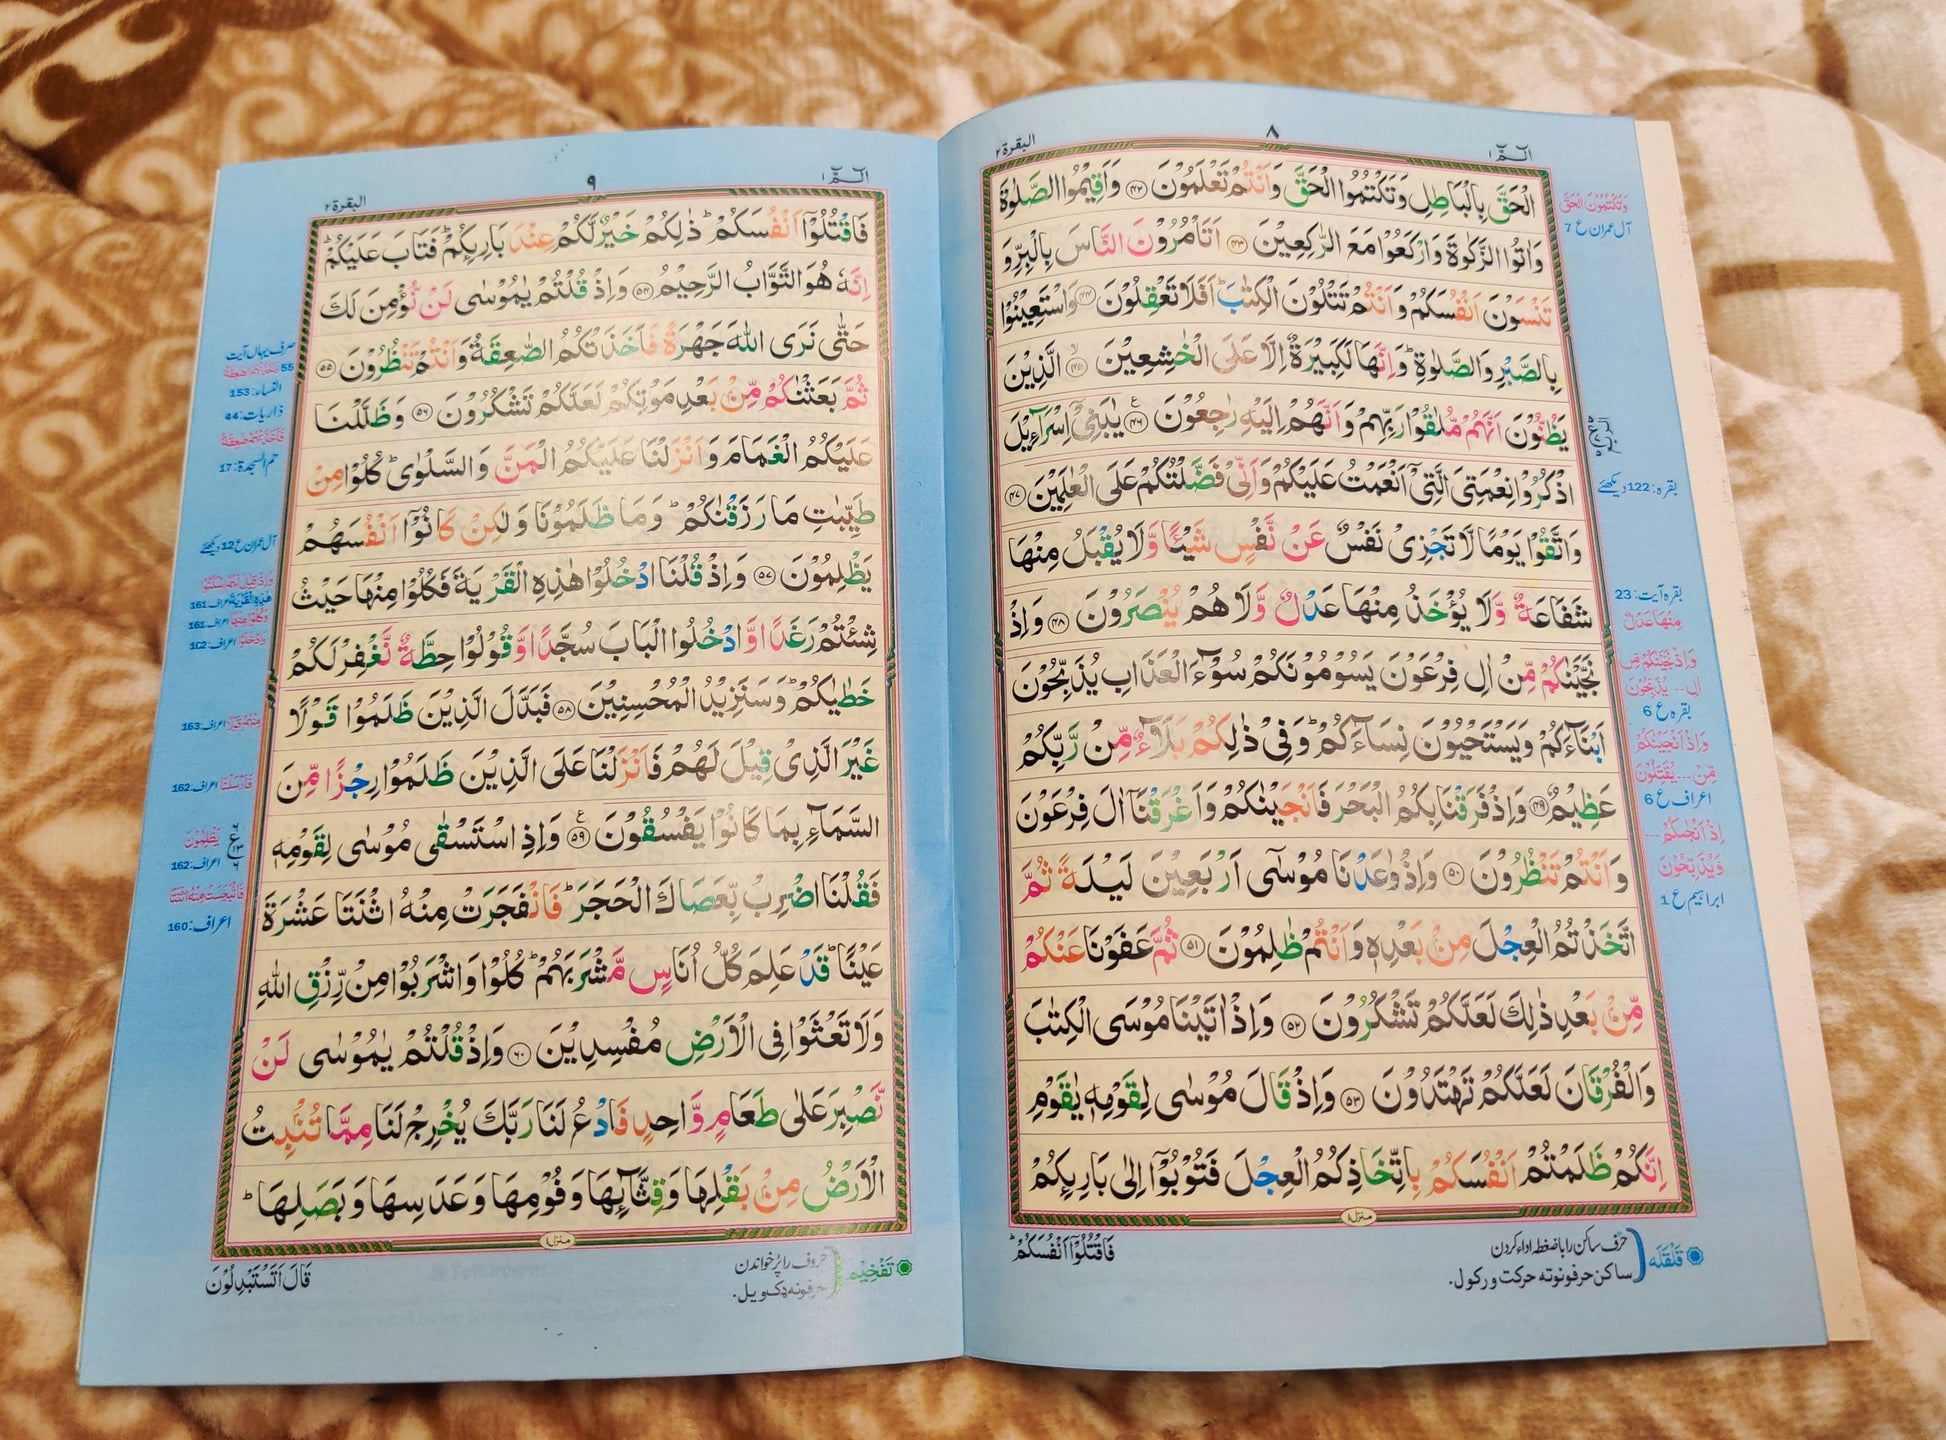 الٓمّٓ ١
٨
البقرة ٢
الْحَقَّ بِالْبَاطِلِ وَتَكْتُمُوا الْحَقَّ وَاَنْتُمْ تَعْلَمُوْنَ ﴿۴۲﴾ وَاَقِيْمُوا الصَّلٰوةَ
وَاٰتُوا الزَّكٰوةَ وَارْكَعُوْا مَعَ الرّٰكِعِيْنَ ﴿۴۳﴾ اَتَاْمُرُوْنَ النَّاسَ بِالْبِرِّ وَ
تَنْسَوْنَ اَنْفُسَكُمْ وَاَنْتُمْ تَتْلُوْنَ الْكِتٰبَ ؕ اَفَلَا تَعْقِلُوْنَ ﴿۴۴﴾ وَاسْتَعِيْنُوْا
بِالصَّبْرِ وَالصَّلٰوةِ ؕ وَاِنَّهَا لَكَبِيْرَةٌ اِلَّا عَلَى الْخٰشِعِيْنَ ﴿۴۵﴾ الَّذِيْنَ
يَظُنُّوْنَ اَنَّهُمْ مُّلٰقُوْا رَبِّهِمْ وَاَنَّهُمْ اِلَيْهِ رٰجِعُوْنَ ﴿۴۶﴾ يٰبَنِيْٓ اِسْرَآءِيْلَ
اذْكُرُوْا نِعْمَتِيَ الَّتِيْٓ اَنْعَمْتُ عَلَيْكُمْ وَاَنِّيْ فَضَّلْتُكُمْ عَلَى الْعٰلَمِيْنَ ﴿۴۷﴾
وَاتَّقُوْا يَوْمًا لَّا تَجْزِيْ نَفْسٌ عَنْ نَّفْسٍ شَيْـًٔا وَّلَا يُقْبَلُ مِنْهَا
شَفَاعَةٌ وَّلَا يُؤْخَذُ مِنْهَا عَدْلٌ وَّلَا هُمْ يُنْصَرُوْنَ ﴿۴۸﴾ وَاِذْ
نَجَّيْنٰكُمْ مِّنْ اٰلِ فِرْعَوْنَ يَسُوْمُوْنَكُمْ سُوْٓءَ الْعَذَابِ يُذَبِّحُوْنَ
اَبْنَآءَكُمْ وَيَسْتَحْيُوْنَ نِسَآءَكُمْ ؕ وَفِيْ ذٰلِكُمْ بَلَآءٌ مِّنْ رَّبِّكُمْ
عَظِيْمٌ ﴿۴۹﴾ وَاِذْ فَرَقْنَا بِكُمُ الْبَحْرَ فَاَنْجَيْنٰكُمْ وَاَغْرَقْنَآ اٰلَ فِرْعَوْنَ
وَاَنْتُمْ تَنْظُرُوْنَ ﴿۵۰﴾ وَاِذْ وٰعَدْنَا مُوْسٰٓى اَرْبَعِيْنَ لَيْلَةً ثُمَّ
اتَّخَذْتُمُ الْعِجْلَ مِنْ بَعْدِهٖ وَاَنْتُمْ ظٰلِمُوْنَ ﴿۵۱﴾ ثُمَّ عَفَوْنَا عَنْكُمْ
مِّنْ بَعْدِ ذٰلِكَ لَعَلَّكُمْ تَشْكُرُوْنَ ﴿۵۲﴾ وَاِذْ اٰتَيْنَا مُوْسَى الْكِتٰبَ
وَالْفُرْقَانَ لَعَلَّكُمْ تَهْتَدُوْنَ ﴿۵۳﴾ وَاِذْ قَالَ مُوْسٰى لِقَوْمِهٖ يٰقَوْمِ
اِنَّكُمْ ظَلَمْتُمْ اَنْفُسَكُمْ بِاتِّخَاذِكُمُ الْعِجْلَ فَتُوْبُوْٓا اِلٰى بَارِىِٕكُمْ
منزل ۱
وَتَكْتُمُوْنَ الْحَقَّ
آل عمران ع 7
بقره: 122 دیکھئے
بقره آیت: 23
مِنْهَا عَدْلٌ
وَاِذْ نَجَّيْنٰكُمْ مِّنْ
اٰلِ -- يُذَبِّحُوْنَ
بقره ع 6
وَاِذْ اَنْجَيْنٰكُمْ
مِّنْ --- يُقَتِّلُوْنَ
اعراف ع 6
اِذْ اَنْجٰىكُمْ ---
وَيُذَبِّحُوْنَ
ابراہیم ع 1
قَلْقَلَه
حرف ساکن را با ضغطه اداء کردن
ساکن حرفونو ته حرکت ورکول.
فَاقْتُلُوْٓا اَنْفُسَكُمْ ؕ
الٓمّٓ ١
٩
البقرة ٢
فَاقْتُلُوْٓا اَنْفُسَكُمْ ؕ ذٰلِكُمْ خَيْرٌ لَّكُمْ عِنْدَ بَارِىِٕكُمْ ؕ فَتَابَ عَلَيْكُمْ ؕ
اِنَّهٗ هُوَ التَّوَّابُ الرَّحِيْمُ ﴿۵۴﴾ وَاِذْ قُلْتُمْ يٰمُوْسٰى لَنْ نُّؤْمِنَ لَكَ
حَتّٰى نَرَى اللّٰهَ جَهْرَةً فَاَخَذَتْكُمُ الصّٰعِقَةُ وَاَنْتُمْ تَنْظُرُوْنَ ﴿۵۵﴾
ثُمَّ بَعَثْنٰكُمْ مِّنْ بَعْدِ مَوْتِكُمْ لَعَلَّكُمْ تَشْكُرُوْنَ ﴿۵۶﴾ وَظَلَّلْنَا
عَلَيْكُمُ الْغَمَامَ وَاَنْزَلْنَا عَلَيْكُمُ الْمَنَّ وَالسَّلْوٰى ؕ كُلُوْا مِنْ
طَيِّبٰتِ مَا رَزَقْنٰكُمْ ؕ وَمَا ظَلَمُوْنَا وَلٰكِنْ كَانُوْٓا اَنْفُسَهُمْ
يَظْلِمُوْنَ ﴿۵۷﴾ وَاِذْ قُلْنَا ادْخُلُوْا هٰذِهِ الْقَرْيَةَ فَكُلُوْا مِنْهَا حَيْثُ
شِئْتُمْ رَغَدًا وَّادْخُلُوا الْبَابَ سُجَّدًا وَّقُوْلُوْا حِطَّةٌ نَّغْفِرْ لَكُمْ
خَطٰيٰكُمْ ؕ وَسَنَزِيْدُ الْمُحْسِنِيْنَ ﴿۵۸﴾ فَبَدَّلَ الَّذِيْنَ ظَلَمُوْا قَوْلًا
غَيْرَ الَّذِيْ قِيْلَ لَهُمْ فَاَنْزَلْنَا عَلَى الَّذِيْنَ ظَلَمُوْا رِجْزًا مِّنَ
السَّمَآءِ بِمَا كَانُوْا يَفْسُقُوْنَ ﴿۵۹﴾ وَاِذِ اسْتَسْقٰى مُوْسٰى لِقَوْمِهٖ
فَقُلْنَا اضْرِبْ بِّعَصَاكَ الْحَجَرَ ؕ فَانْفَجَرَتْ مِنْهُ اثْنَتَا عَشْرَةَ
عَيْنًا ؕ قَدْ عَلِمَ كُلُّ اُنَاسٍ مَّشْرَبَهُمْ ؕ كُلُوْا وَاشْرَبُوْا مِنْ رِّزْقِ اللّٰهِ
وَلَا تَعْثَوْا فِي الْاَرْضِ مُفْسِدِيْنَ ﴿۶۰﴾ وَاِذْ قُلْتُمْ يٰمُوْسٰى لَنْ
نَّصْبِرَ عَلٰى طَعَامٍ وَّاحِدٍ فَادْعُ لَنَا رَبَّكَ يُخْرِجْ لَنَا مِمَّا تُنْۢبِتُ
الْاَرْضُ مِنْ بَقْلِهَا وَقِثَّآىِٕهَا وَفُوْمِهَا وَعَدَسِهَا وَبَصَلِهَا ؕ
منزل ۱
صرف یہاں آیت
55
النساء: 153
ذاریات: 44
حم السجدة: 17
آل عمران ع 12 دیکھئے
اعراف: 161
اعراف: 161
اعراف: 162
اعراف: 162
يَظْلِمُوْنَ
اعراف: 162
اعراف: 160
تَفْخِيْم
حروف را پُر خواندن
حرفونه ډک ویل.
قَالَ اَتَسْتَبْدِلُوْنَ